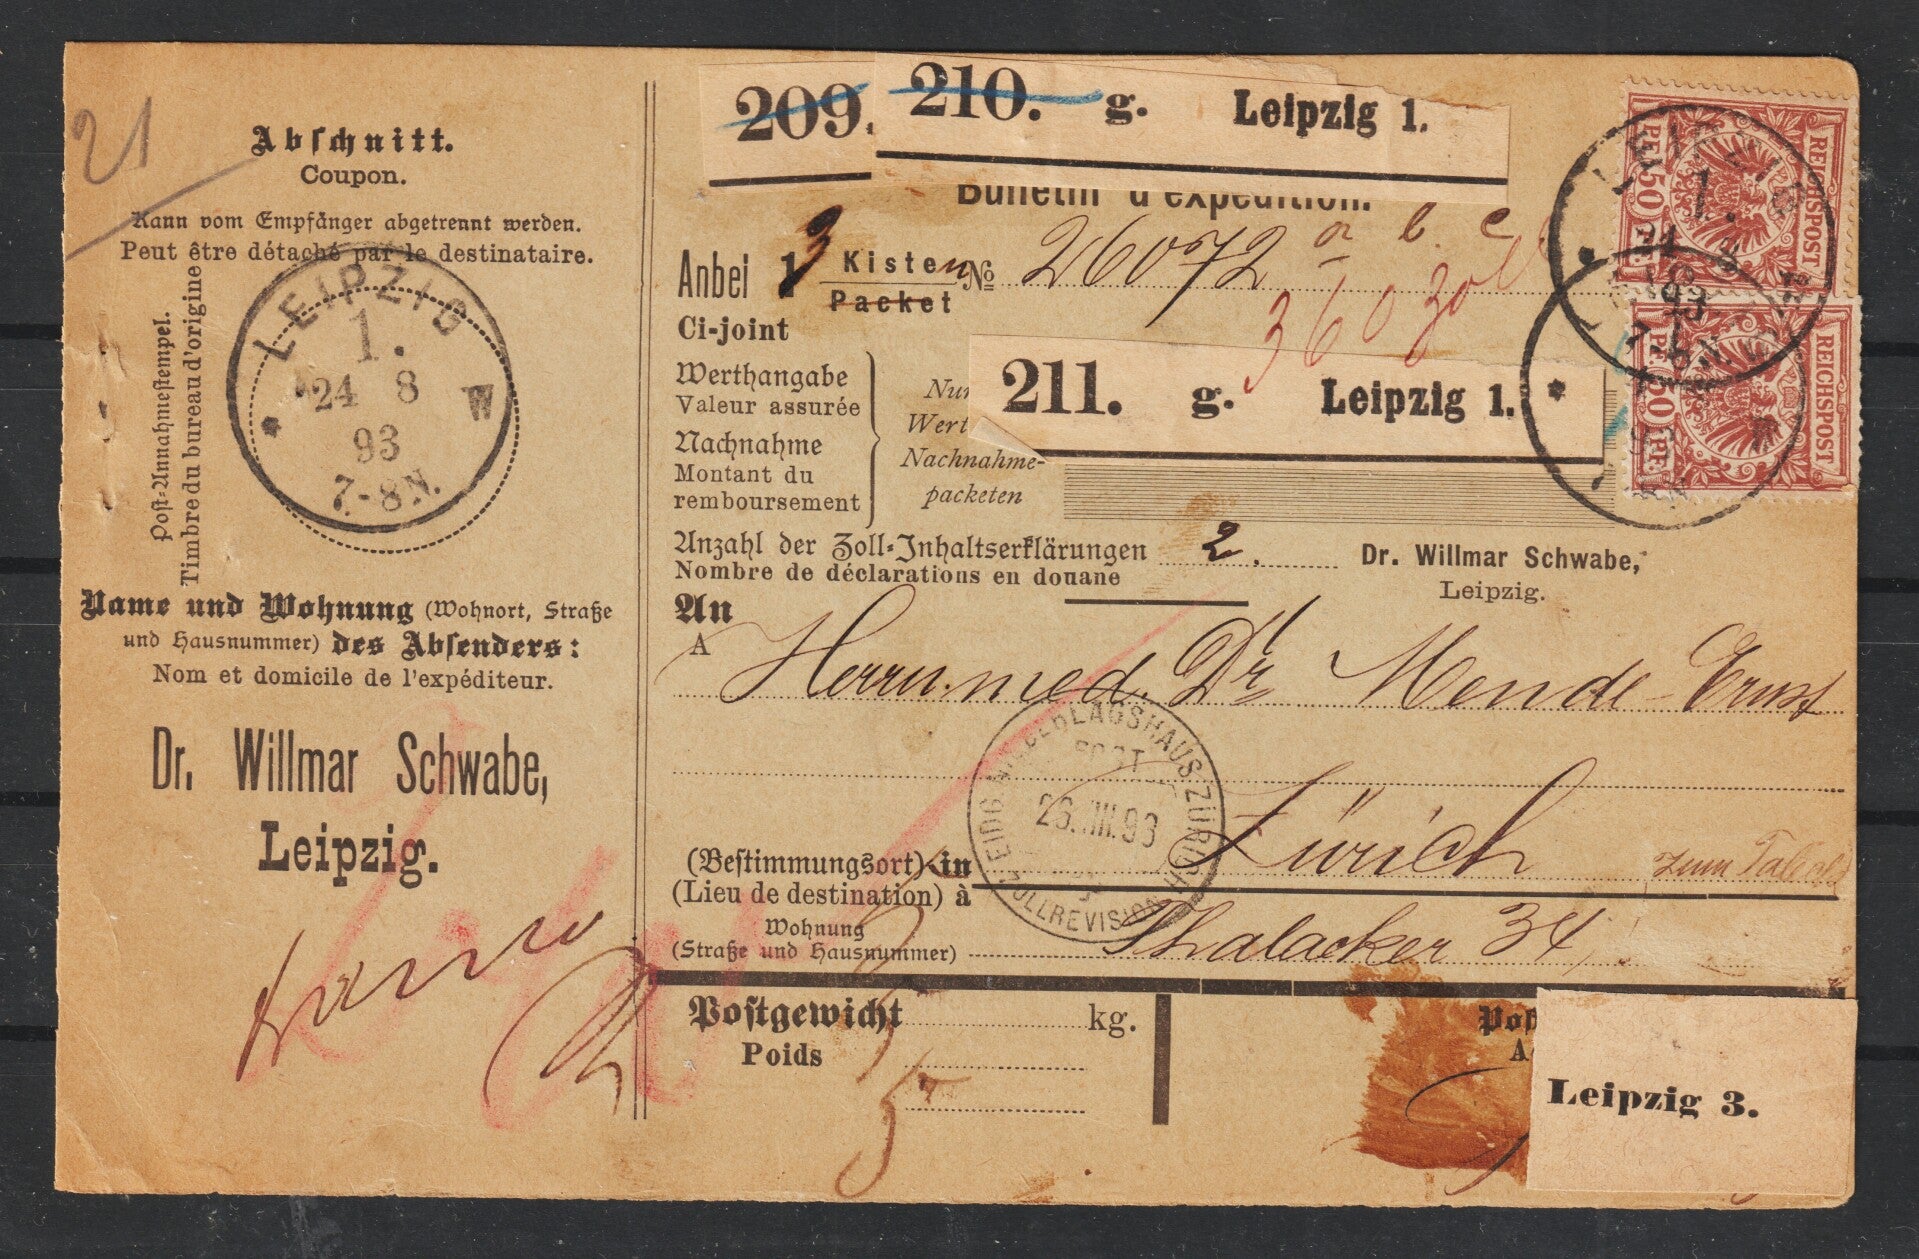 21
Abschnitt.
Coupon.
Kann vom Empfänger abgetrennt werden.
Peut être détaché par le destinataire.
Post-Annahmestempel.
Timbre du bureau d'origine
LEIPZIG
1.
24 8
W
93
7.-8N.
Name und Wohnung (Wohnort, Straße
und Hausnummer) des Absenders:
Nom et domicile de l'expéditeur.
Dr. Willmar Schwabe,
Leipzig.
209.
210. g. Leipzig 1.
Bulletin d'expédition.
Anbei 3 Kisten No 26072 a b. c
Packet
Ci-joint
360
211. g. Leipzig 1.
Werthangabe
Valeur assurée
Nachnahme
Montant du
remboursement
Nachnahme-
packeten
Anzahl der Zoll-Inhaltserklärungen 2.
Nombre de déclarations en douane
Dr. Willmar Schwabe,
Leipzig.
An
A
Herrn med. Dr Mende-Ernst
EIDG. NIEDERLAGSHAUS ZÜRICH
POST
26.VIII.93
ZOLLREVISION
(Bestimmungsort) in Zürich
(Lieu de destination) à
Wohnung
(Straße und Hausnummer) Thalacker 34
Postgewicht kg.
Poids
Leipzig 3.
REICHSPOST
50 PF 50
LEIPZIG
1.
93
REICHSPOST
50 PF